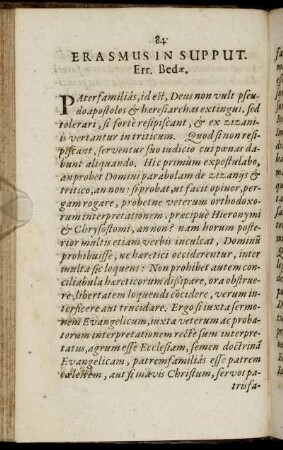 84
ERASMUS IN SUPPUT.
Err. Bedæ.
PAterfamiliâs, id est, Deus non vult pseu-
doapostolos & heresiarchas extingui, sed
tolerari, si fortè resipiscant, & ex zizani-
is vertantur in triticum. Quod si non resi-
piscant, serventur suo iudicio cui pœnas da-
bunt aliquando. Hîc primùm expostulabo,
an probet Domini parabolam de zizanijs &
tritico, an non: si probat, ut facit opinor, per-
gam rogare, probetne veterum orthodoxo-
rum interpretationem, præcipuè Hieronymi
& Chrysostomi, an non? nam horum poste-
rior multis etiam verbis inculcat, Dominũ
prohibuisse, ne hæretici occiderentur, inter
multa sic loquens: Non prohibet autem con-
ciliabula hæreticorum dißipare, ora obstrue-
re, libertatem loquendi cõcidere, verum in-
terficere aut trucidare. Ergo si iuxta sermo-
nem Evangelicum, iuxta veterum ac proba-
torum interpretationem rectè sunt interpre-
tatus, agrum esse Ecclesiam, semen doctrinã
Evangelicam, patremfamiliâs esse patrem
cœlestem, aut si mavis Christum, servos pa-
trisfa-